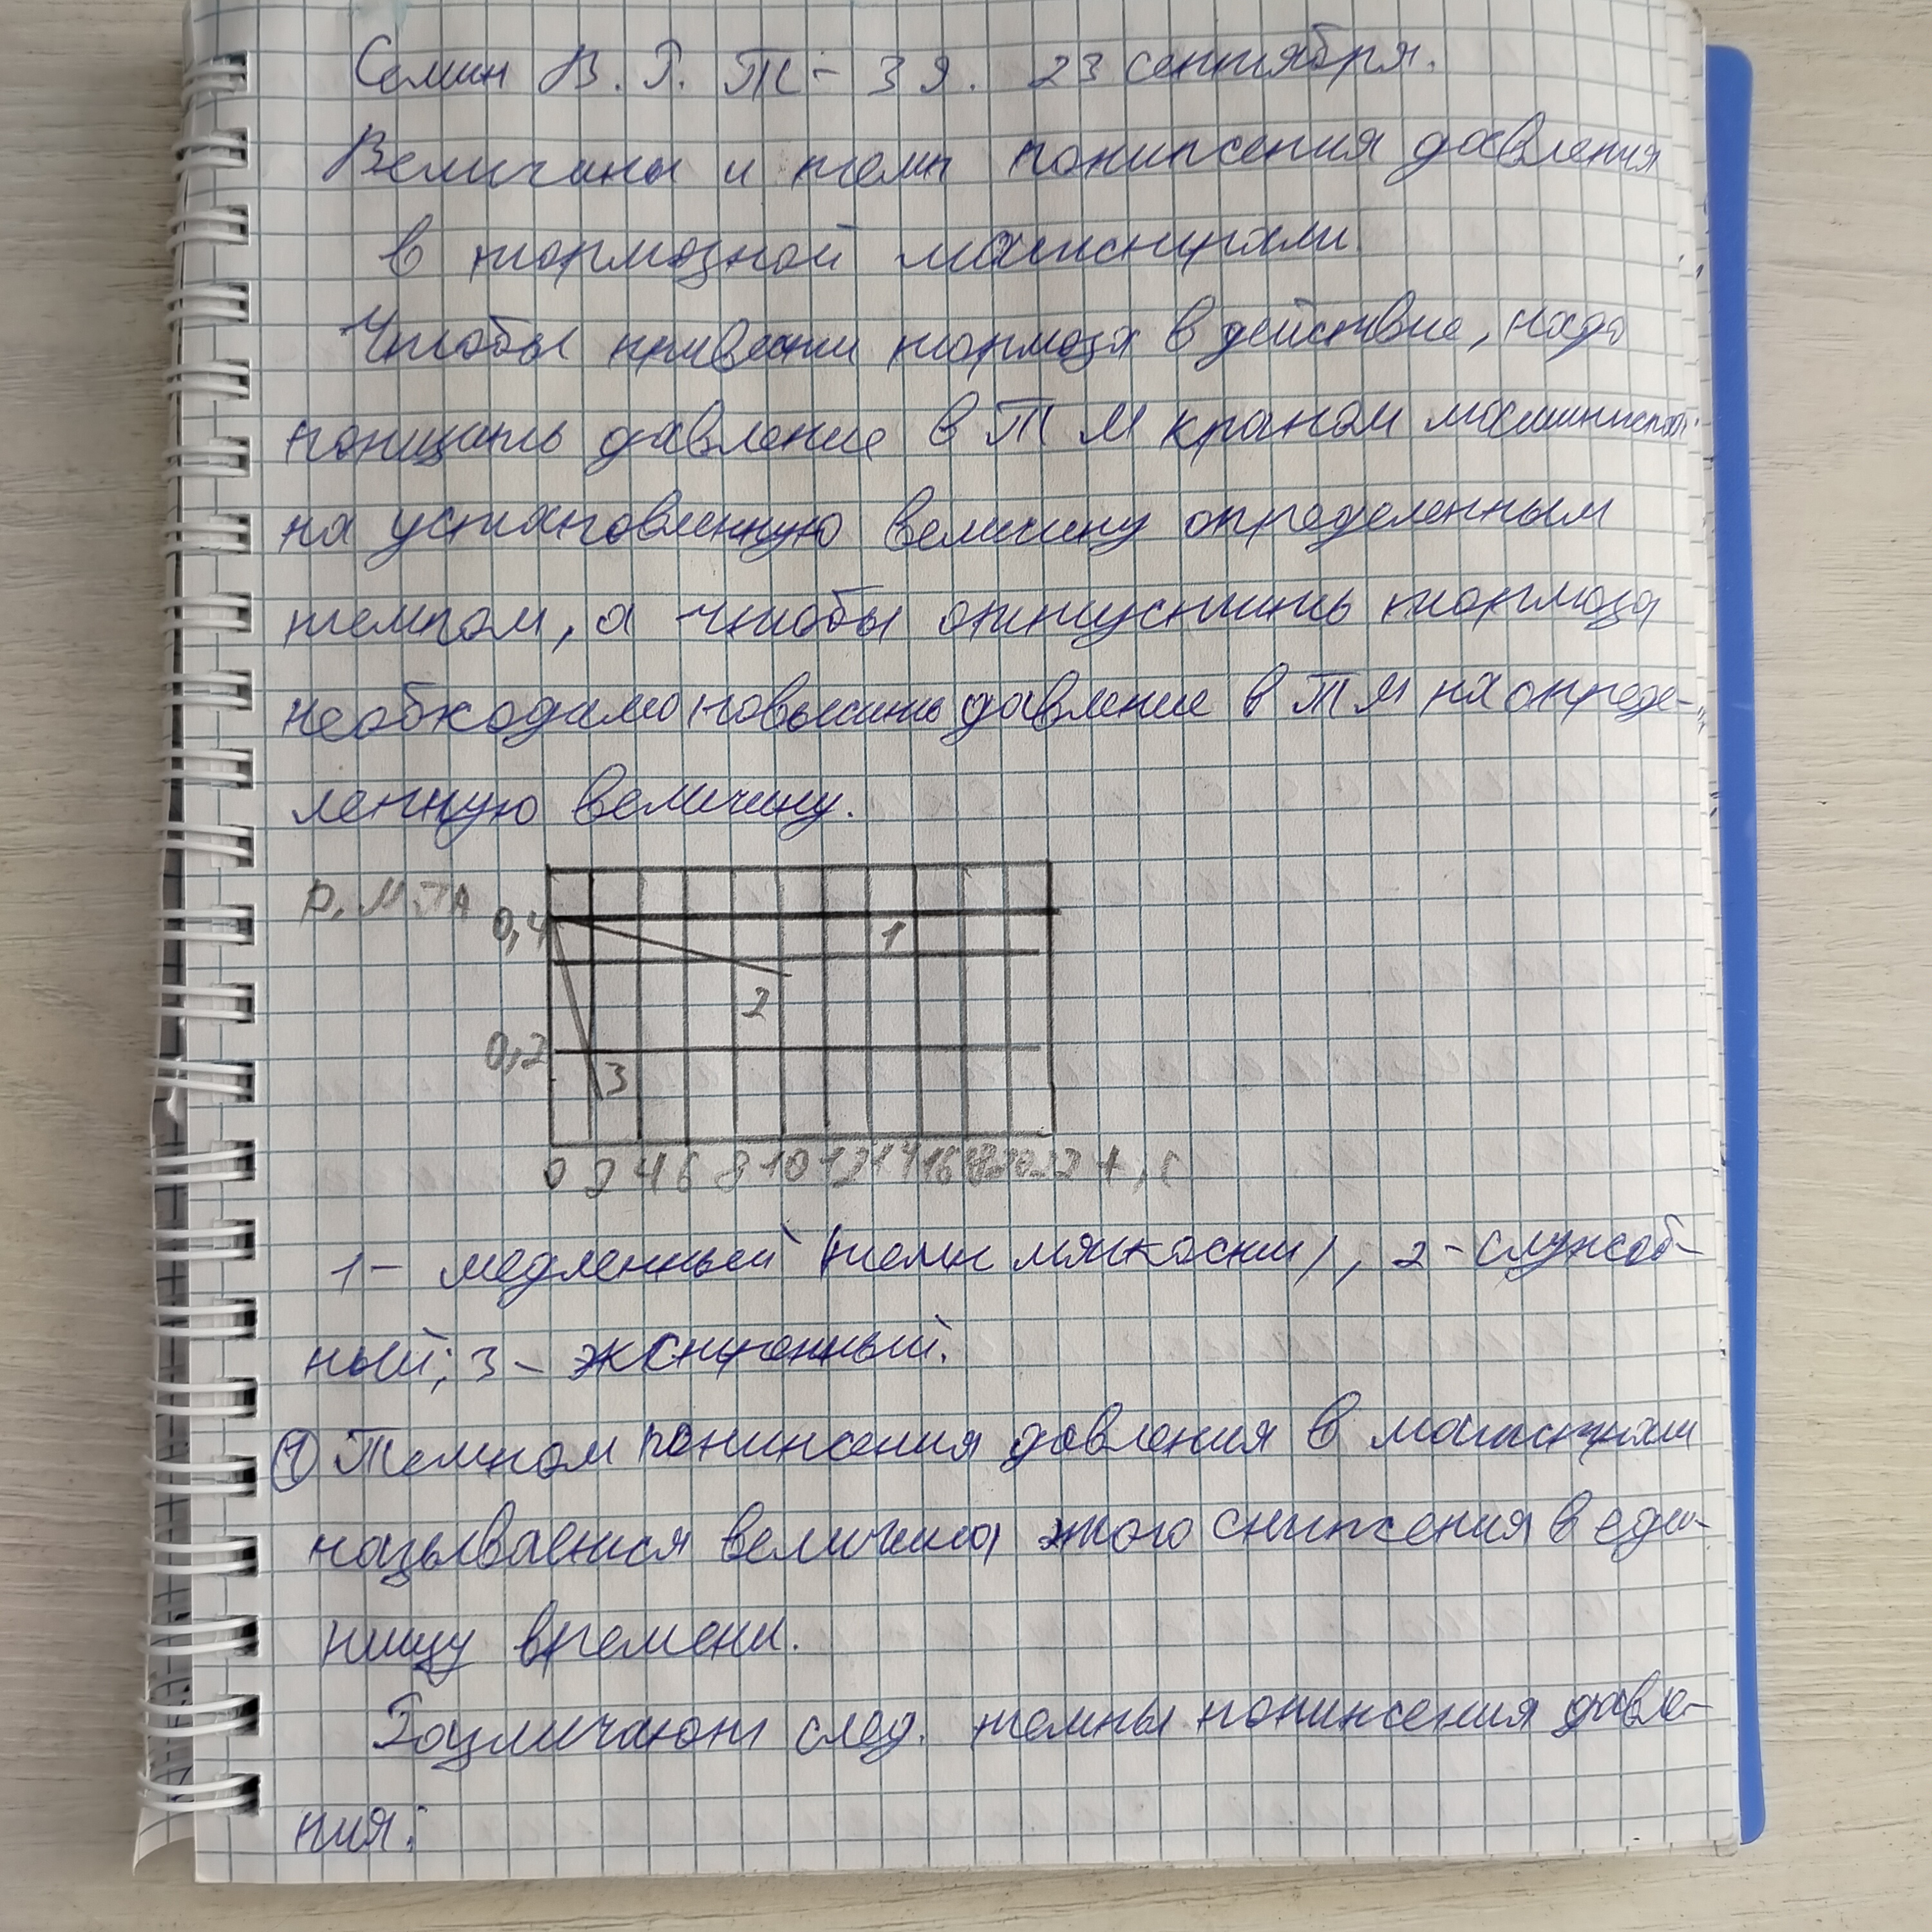 Семин В. Р. ТЖ-39. 23 сентября.
Величина и темп понижения давления
в тормозной магистрали
Чтобы привести тормоза в действие, надо
понизить давление в ТМ краном машиниста
на установленную величину определенным
темпом, а чтобы отпустить тормоза
необходимо повысить давление в ТМ на опреде-
ленную величину.
р, МПА
0,4
1
2
0,2
3
0 2 4 6 8 10 12 14 16 18 20 22 t, с
1- медленный (темп мягкости), 2-служеб-
ный; 3- экстренный.
Темпом понижения давления в магистрали
называется величина этого снижения в еди-
ницу времени.
Различают след. темпы понижения давле-
ния: